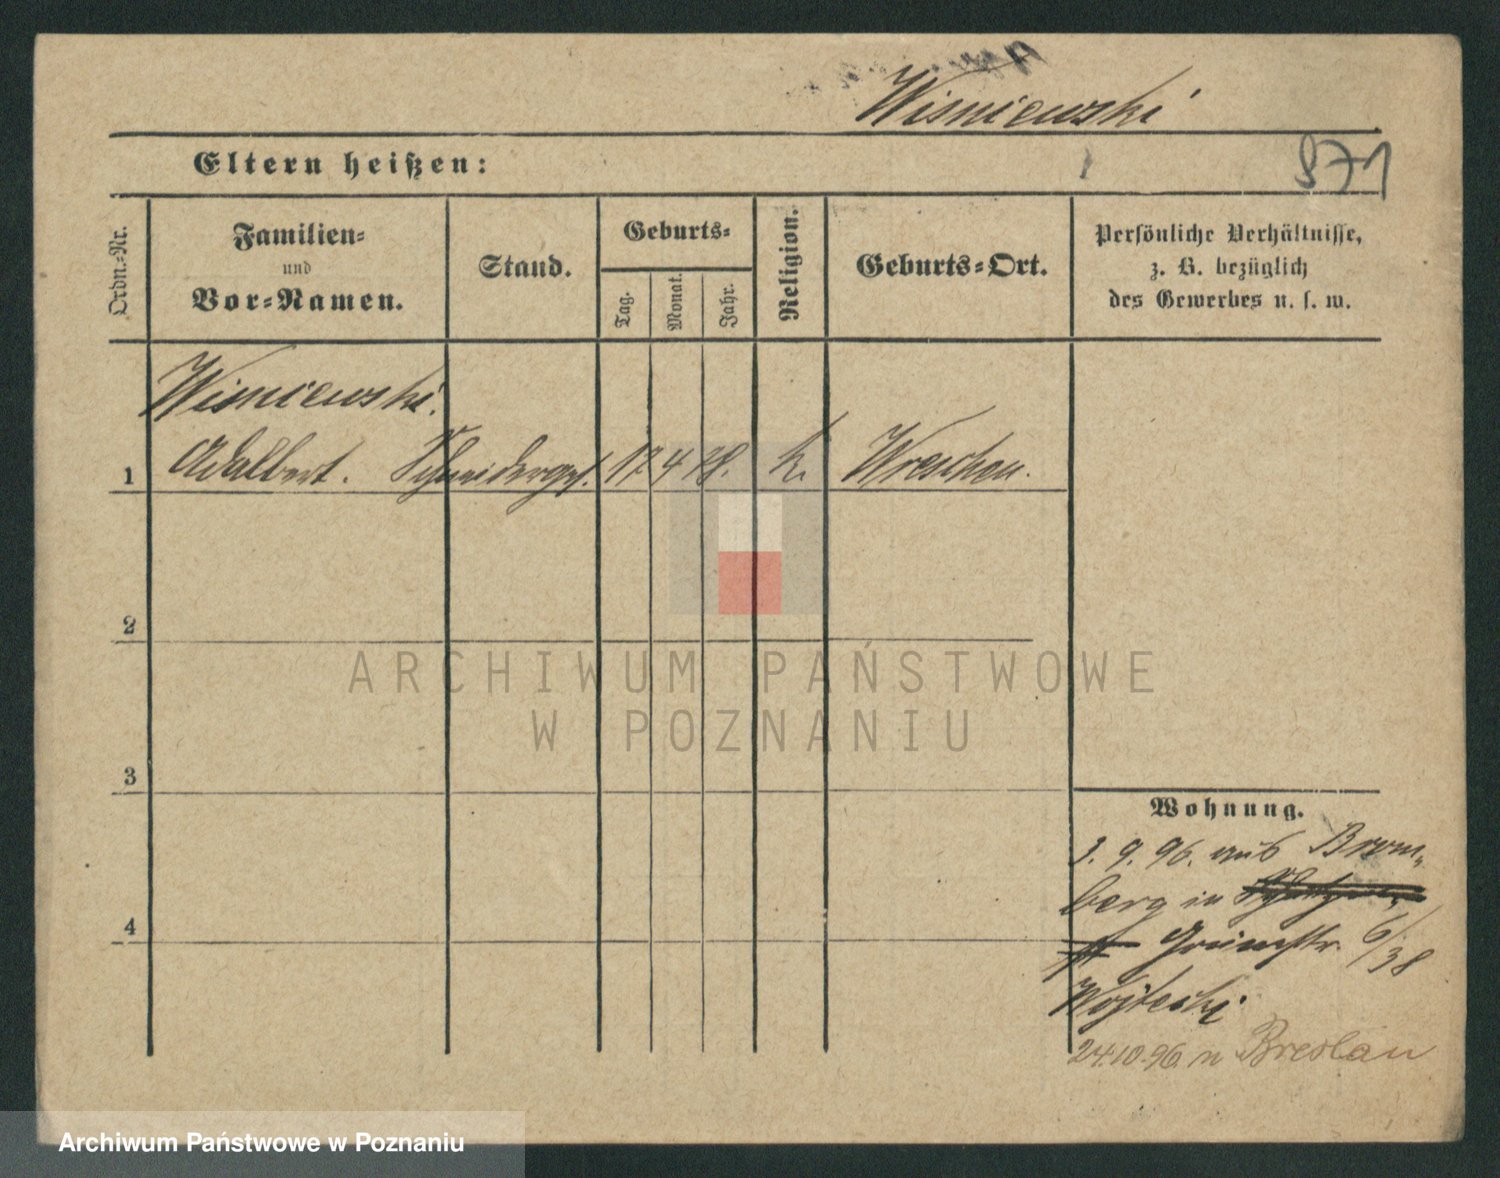 Wisniewski
871
Eltern heißen:
Ordn.-Nr.
Familien-
und
Vor-Namen.
Stand.
Geburts-
Tag.
Monat.
Jahr.
Religion.
Geburts-Ort.
Persönliche Verhältnisse,
z. B. bezüglich
des Gewerbes u. s. w.
Wisniewski.
1 Adalbert. Schneiderges. 17. 4 78. k. Wreschen.
2
ARCHIWUM PAŃSTWOWE
W POZNANIU
3
4
Wohnung.
3. 9. 96. aus Brom-
berg in
Grünestr. 6/38
Wojtecki
24.10.96. n Breslau
Archiwum Państwowe w Poznaniu